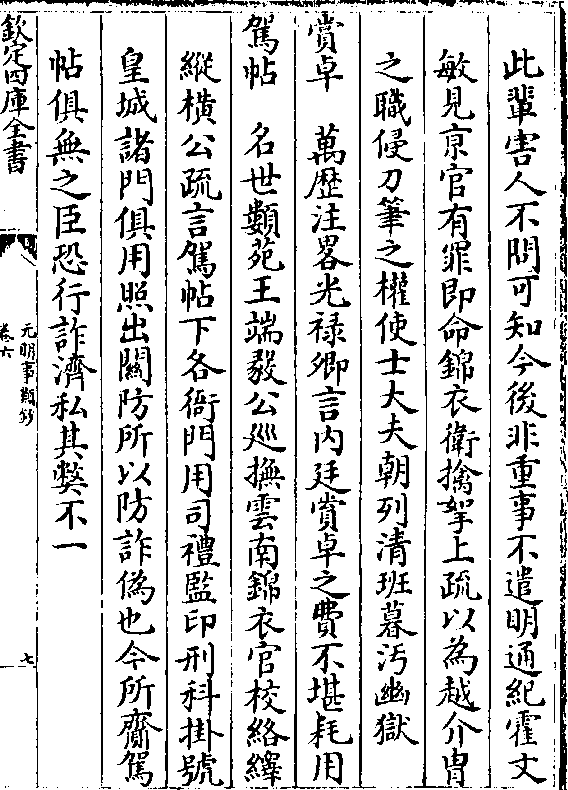 此輩害人不問可知今後非重事不遣明通紀霍文
敏見京官有罪即命錦衣衛擒拏上疏以為越介胄
之職侵刀筆之權使士大夫朝列清班暮汚幽獄
賞卓　萬歴注畧光禄卿言内廷賞卓之費不堪耗用
駕帖　名世類苑王端毅公廵撫雲南錦衣官校絡繹
縱横公疏言駕帖下各衙門用司禮監印刑科掛號
皇城諸門俱用照出關防所以防詐偽也今所齎駕
帖俱無之臣恐行詐濟私其弊不一
欽定四庫全書
元明事類鈔
卷六
七